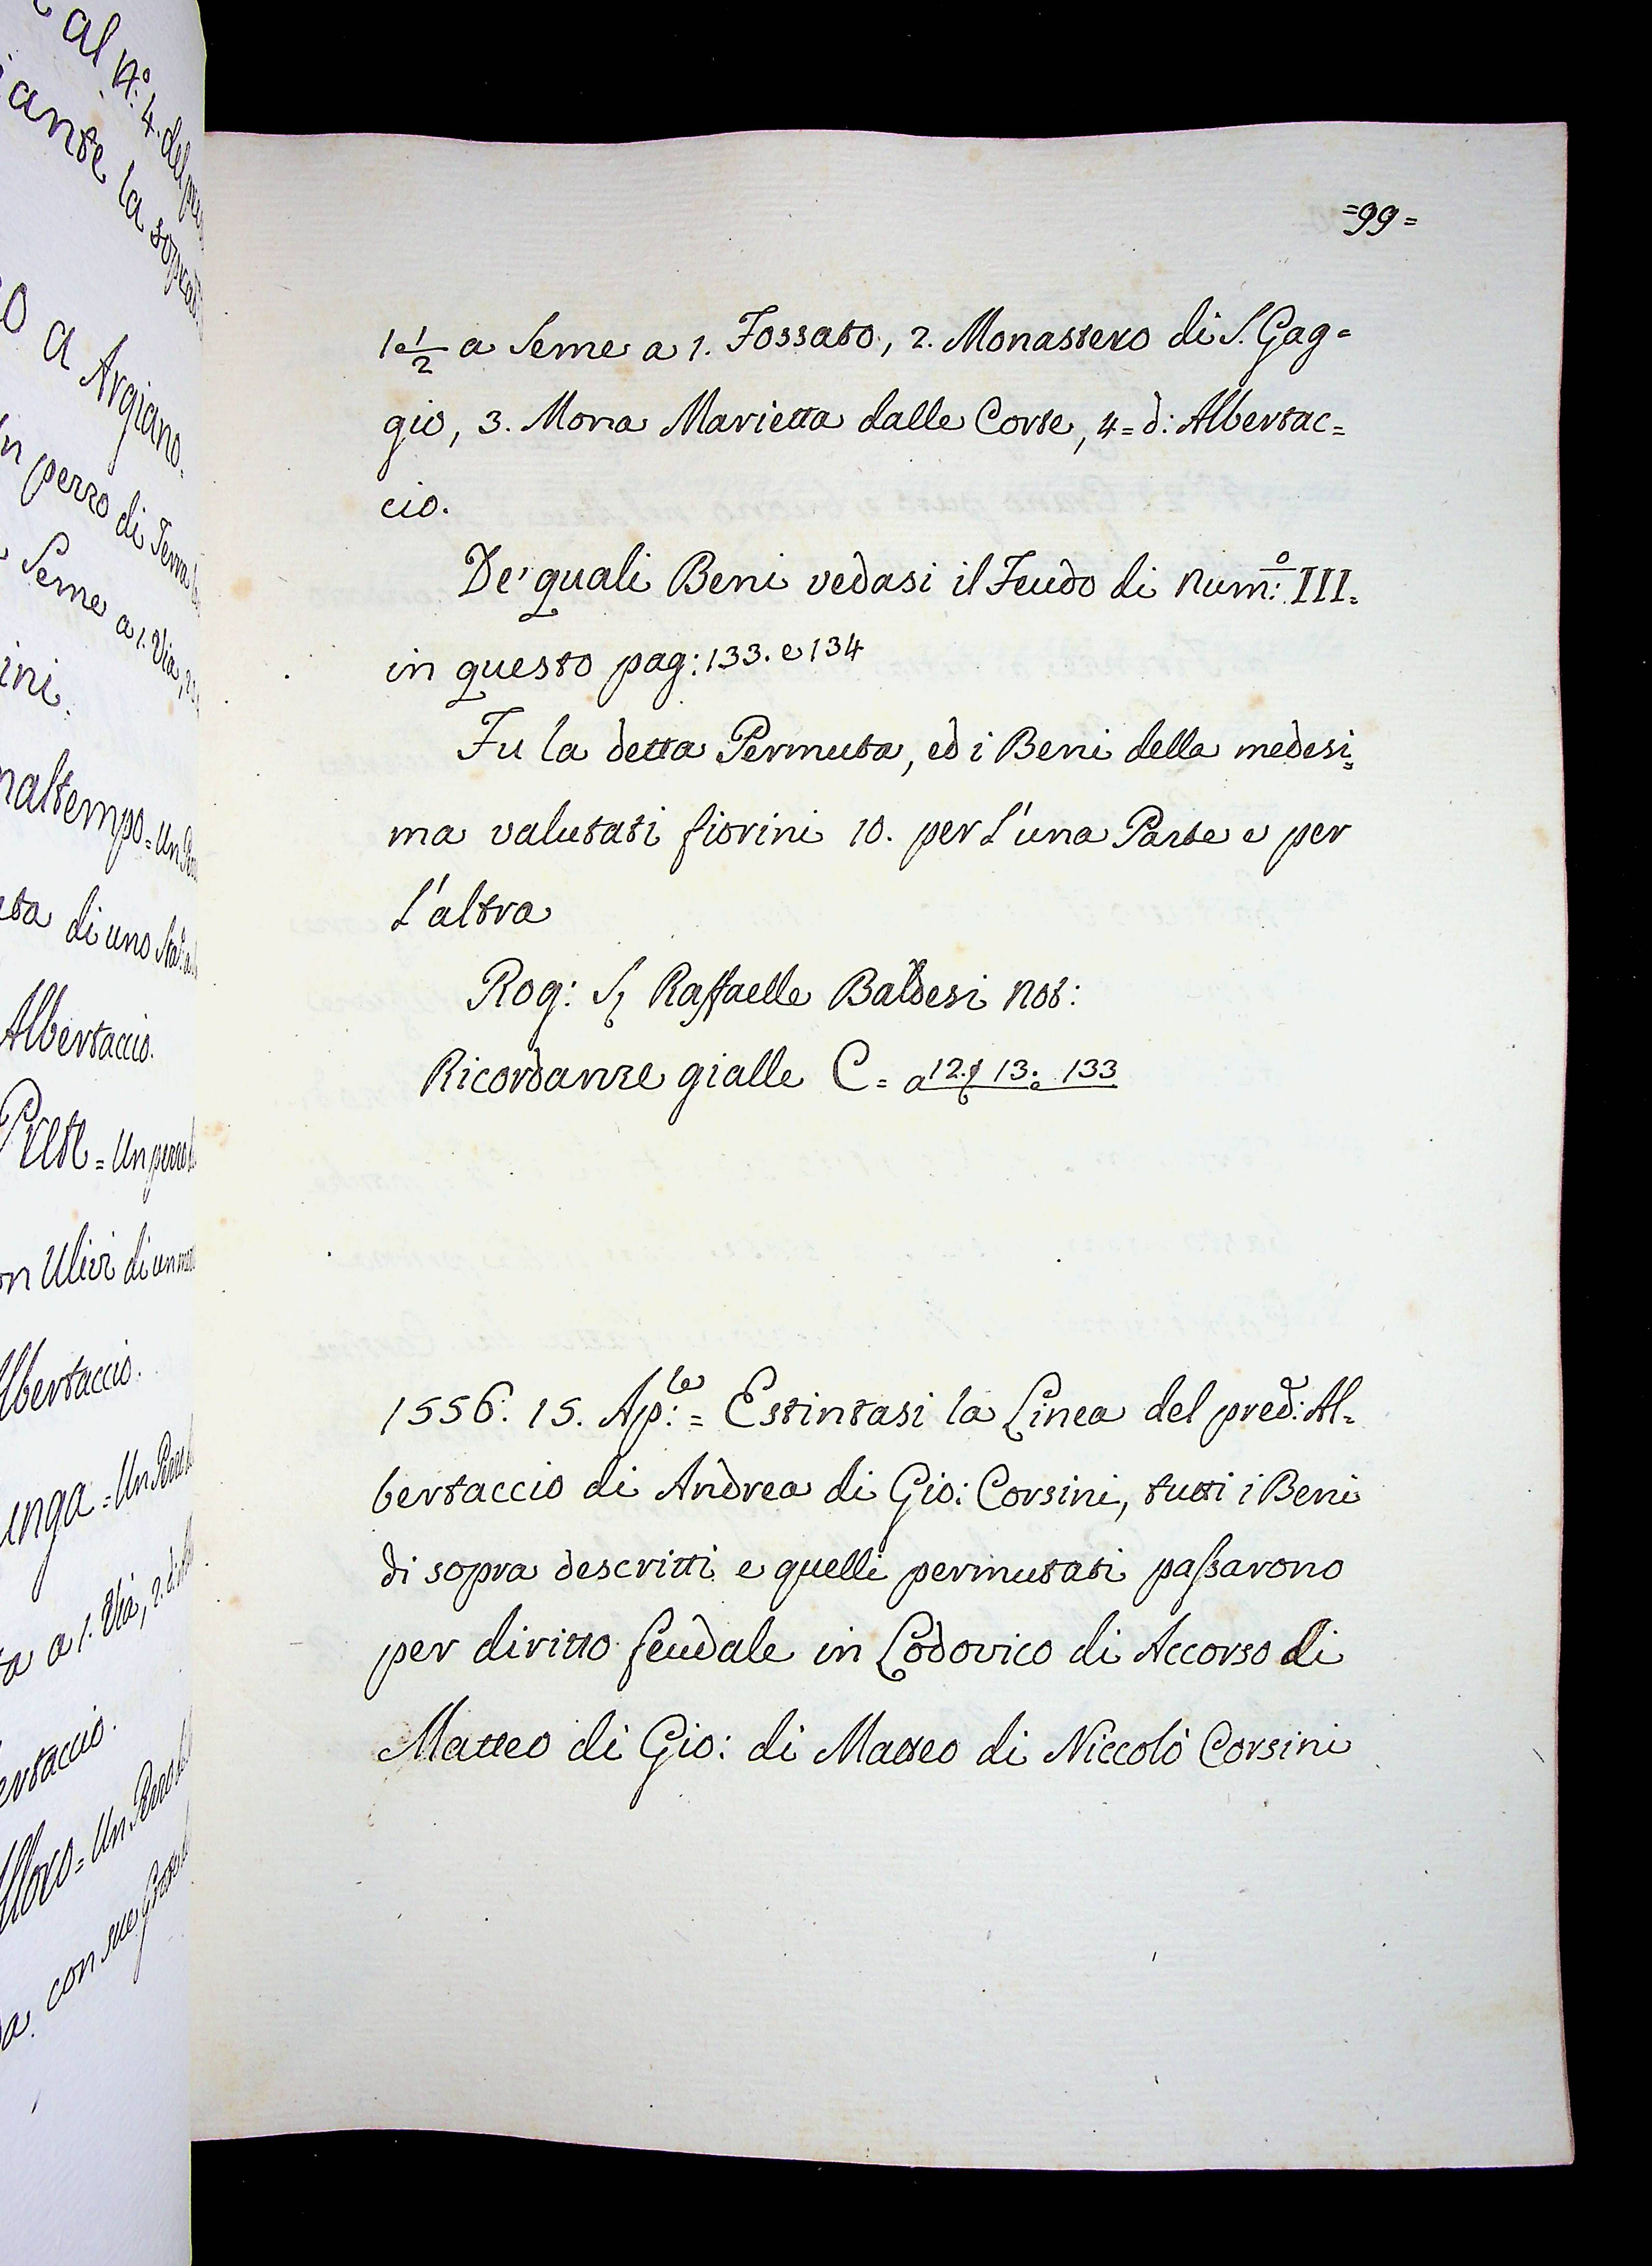 al N.o 4. del
iante la sopra
o a Argiano.
n pezzo di Terra
Seme a 1. Via, 2.
ini.
maltempo = Un
uta di uno
Albertaccio.
Prete = Un pezzo
on Ulivi di un
lbertaccio.
unga = Un Pezzo
ta a 1. Via, 2.
ertaccio.
Un Pezzo
a con sue
=99=
1 e 1/2 a Seme a 1. Fossato, 2. Monastero di S. Gag=
gio, 3. Mona Marietta dalle Corte, 4= d: Albertac=
cio.
De' quali Beni vedasi il Feudo di Num:o III.
in questo pag: 133. e 134
Fu la detta Permuta, ed i Beni della medesi=
ma valutati fiorini 10. per l'una Parte e per
l'altra
Rog: S. Raffaelle Baldesi Not:
Ricordanze gialle C= a 12. 13. 133
1556. 15. Ap:le = Estintasi la Linea del pred: Al=
bertaccio di Andrea di Gio: Corsini, tutti i Beni
di sopra descritti e quelli permutati passarono
per diritto feudale in Lodovico di Accorso di
Matteo di Gio: di Matteo di Niccolò Corsini